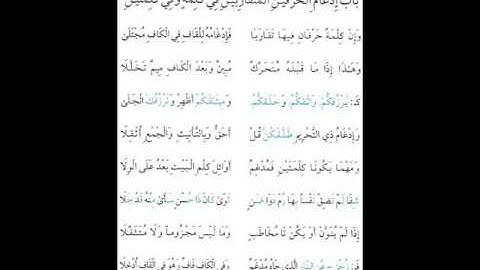 بَابُ إِدْغَامِ الْحَرْفَيْنِ الْمُتَقَارِبَيْنِ فِي كَلِمَةٍ وَفِي كَلِمَتَيْنِ
وَإِنْ كِلْمَةٌ حَرْفَانِ فِيهَا تَقَارَبَا فَإِدْغَامُهُ لِلْقَافِ فِي الْكَافِ مُجْتَلَى
وَهَٰذَا إِذَا مَا قَبْلَهُ مُتَحَرِّكٌ مُبِينٌ وَبَعْدَ الْكَافِ مِيمٌ تَخَلَّلَا
كَـ: يَرْزُقكُّمُ وَاثَقكُّمُ وَخَلَقكُّمُ وَمِيثَٰقَكُمْ أَظْهِرْ وَنَرْزُقُكَ انْجَلَىٰ
وَإِدْغَامُ ذِي التَّحْرِيمِ طَلَّقَكُنَّ قُلْ أَحَقُّ وَبِالتَّأْنِيثِ وَالْجَمْعِ أُثْقِلَا
وَمَهْمَا يَكُونَا كِلْمَتَيْنِ فَمُدْغِمٌ أَوَائِلَ كِلْمِ الْبَيْتِ بَعْدُ عَلَى الْوِلَا
شِفَا لَمْ تَضِقْ نَفْسًا بِهَا رُمْ دَوَا ضَنٍ ثَوَى كَانَ ذَا حُسْنٍ سَأَىٰ مِنْهُ قَدْ جَلَا
إِذَا لَمْ يُنَوَّنْ أَوْ يَكُنْ تَا مُخَاطَبٍ وَمَا لَيْسَ مَجْزُومًا وَلَا مُتَثَقِّلَا
فَزُحْزِحَ عَنِ النَّارِ الَّذِي حَاهُ مُدْغَمٌ وَفِي الْكَافِ قَافٌ وَهْوَ فِي الْقَافِ أُدْخِلَا